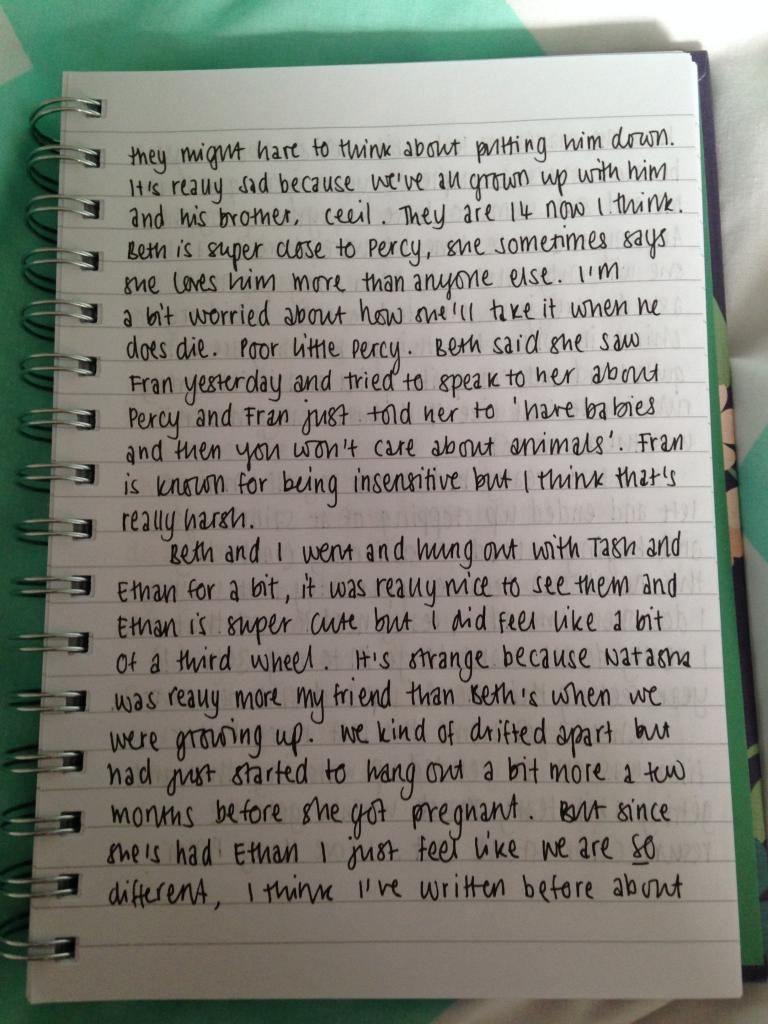 they might have to think about putting him down.
It's really sad because we've all grown up with him
and his brother, Cecil. They are 14 now I think.
Beth is super close to Percy, she sometimes says
she loves him more than anyone else. I'm
a bit worried about how she'll take it when he
does die. Poor little Percy. Beth said she saw
Fran yesterday and tried to speak to her about
Percy and Fran just told her to 'have babies
and then you won't care about animals'. Fran
is known for being insensitive but I think that's
really harsh.
Beth and I went and hung out with Tash and
Ethan for a bit, it was really nice to see them and
Ethan is super cute but I did feel like a bit
of a third wheel. It's strange because Natasha
was really more my friend than Beth's when we
were growing up. We kind of drifted apart but
had just started to hang out a bit more a few
months before she got pregnant. But since
she's had Ethan I just feel like we are so
different, I think I've written before about